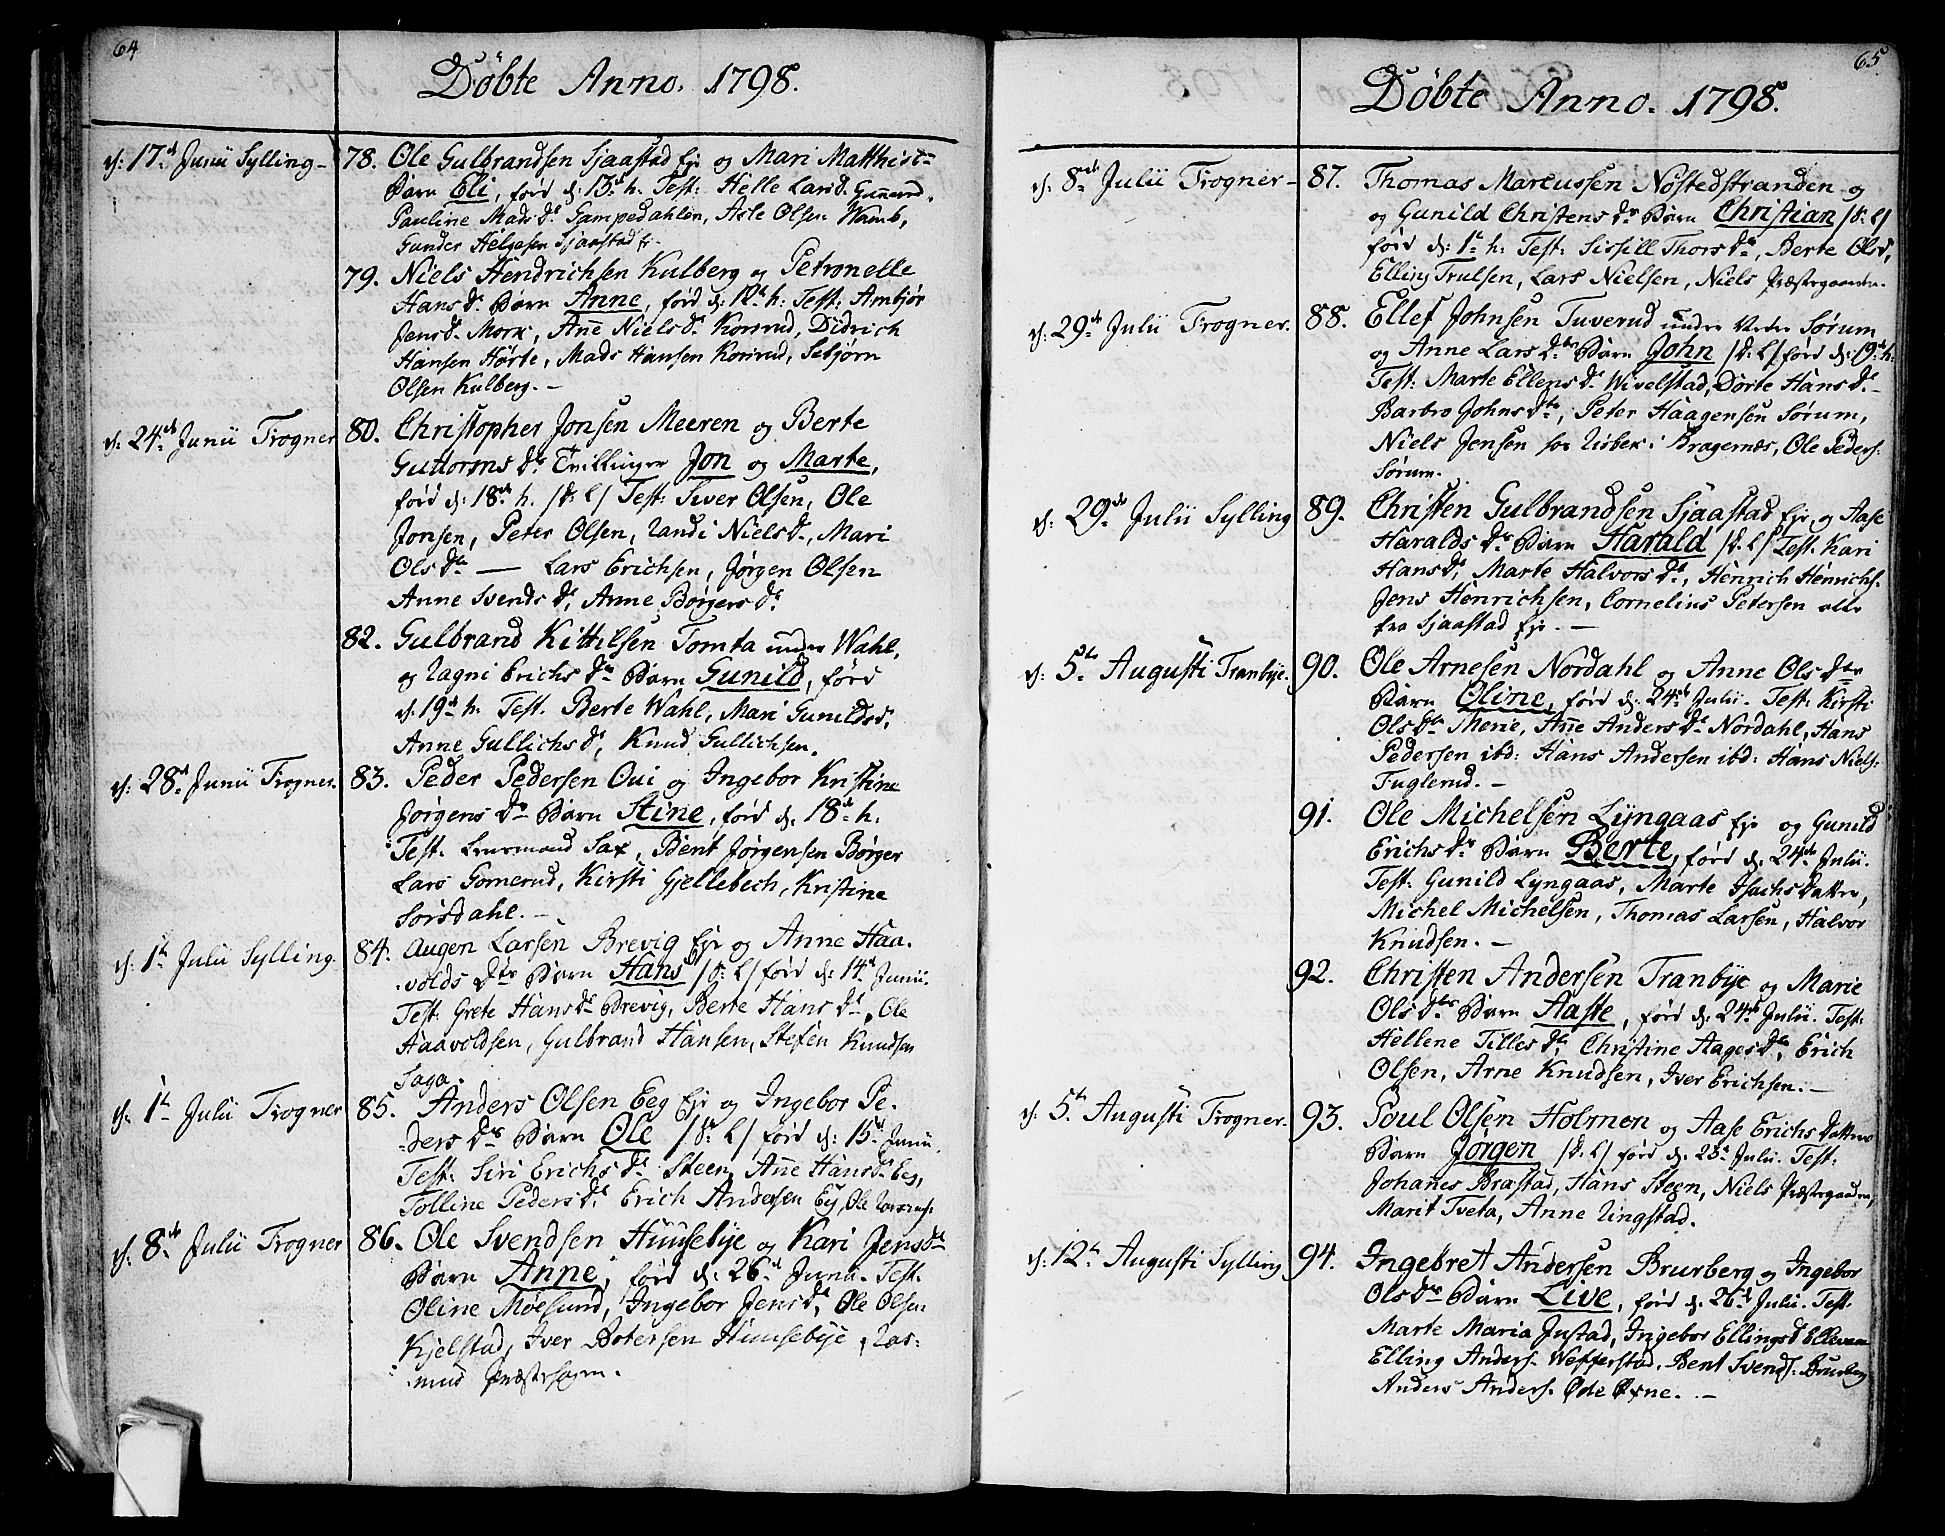 64
Döbte Anno. 1798.
d: 17de Junii Sylling –
78. Ole Gulbrandsen Sjaastad Eje og Mari Matthist=
Barn Eli, förd d: 13de h. Test: Helle Larsd. Gunnerud,
Pauline Mads Dr. Gampedahlen, Asle Olsen Wamb,
Gunder Helgesen Sjaastad E.
79. Niels Hendrichsen Kulberg og Petronelle
Hans Dr. Barn Anne, förd d: 12te h: Test: Ambjör
Jensd. Mork, Añe Nielsd. Korsrud, Didrich
Hansen Hörte, Mads Hansen Korsrud, Sebjörn
Olsen Kulberg. –
d: 24de Junii Trogner
80. Christopher Jonsen Meeren og Berte
Guttorms Dr. Tvillinger Jon og Marte,
förd d: 18de h. /d: L/ Test: Siver Olsen, Ole
Jonsen, Peter Olsen, Randi Nielsd., Mari
Ols Dtr — Lars Erichsen, Jörgen Olsen
Anne Svends Dr, Anne Börgers Dr
82. Gulbrand Kittilsen Tomta under Wahl,
og Ragni Erichs Dtr Barn Gunild, förd
d. 19de h. Test. Berte Wahl, Mari Gunildsd,
Anne Gullichs Dr, Knud Gullichsen.
d: 28de Junii Trogner.
83. Peder Pedersen Oui og Ingebor Kristine
Jörgens Dr Barn Stine, förd d: 18de h.
Test. Lensmand Sax, Bent Jörgensen Börger
Lars Gomerud, Kirsti Gjellebech, Kristine
Sörsdahl. –
d. 1te Julii Sylling.
84. Augon Larsen Brevig Eje og Anne Haa=
volds Dtr Barn Hans /d: L/ förd d: 14de Junii.
Test: Grete Hans Dr Brevig, Berte Hans Dr, Ole
Haavoldsen, Gulbrand Hansen, Steffen Knudsen
Saga.
d. 1te Julii Trogner
85. Anders Olsen Eeg Eje og Ingebor Pe=
ders Dr Barn Ole /d: L/ förd d: 15de Junii.
Test: Siri Erichs Dr Steen, Añe Hansd. Eeg,
Tolline Peders Dr Erich Andersen Eg, Ole
d. 8de Julii Trogner
86. Ole Svendsen Huusebye og Kari Jensd.
Barn Anne, förd d: 26de Junii. Test.
Oline Möesund, Ingebor Jensd, Ole Olsen
Kjelstad, Iver Botersen Huusebye, Ras=
mus Præstegen.
65.
Döbte Anno. 1798.
d: 8de Julii Trogner –
87. Thomas Marcussen Nöstedstranden og
og Gunild Christens Dr Barn Christian /d: L/
förd d: 1te h: Test: Sissill Thors Dr, Berte Olsd,
Elling Trulsen, Lars Nielsen, Niels Præstegaarden.
d: 29de Julii Trogner.
88. Ellef Johnsen Tuverud under Vestre Sörum
og Anne Lars Dtr Barn John /d: L/ förd d: 19de h:
Test: Marte Ellens Dr Wivelstad, Dorte Hans Dr –
Barbro Johns Dtr, Peter Haagensen Sörum,
Niels Jensen paa Risbek i Bragernæs, Ole Peders:
Sörum.
d: 29de Julii Sylling
89. Christen Gulbrandsen Sjaastad Eje, og Aase
Haralds Dr Barn Harald /d: L/ Test. Kari
Hansd, Marte Halvors Dr, Henrich Henrichs.
Jens Henrichsen, Cornelius Petersen alle
fra Sjaastad Eje. –
d: 5te Augusti Tranbye.
90. Ole Arnesen Nordahl og Anne Ols Dtr
Barn Oline, förd d: 24de Julii. Test: Kirsti
Ols Dtr Merie, Añe Anders Dr Nordahl, Hans
Pedersen ibd: Hans Andersen ibd: Hans Niels:
Fuglerud. –
91. Ole Michelsen Lyngaas Eje og Gunild
Erichs Dr Barn Berte, förd d: 24de Julii.
Test: Gunild Lyngaas, Marte Isachs Datter,
Michel Michelsen, Thomas Larsen, Halvor
Knudsen. –
92. Christen Andersen Tranbye og Marie
Ols Dtr Barn Aaste, förd d: 24de Julii. Test:
Hellene Tilles Dr, Christine Aages Dr, Erich
Olsen, Arne Knudsen, Iver Erichsen. –
d: 5te Augusti Trogner.
93. Poul Olsen Holmen og Aase Erichs Datters
Barn Jörgen /d: L/ förd d: 25de Julii. Test:
Johanes Brastad, Hans Stegn, Niels Præstegaarden,
Marit Tveta, Anne Ringstad.
d: 12te Augusti Sylling
94. Ingebret Andersen Brurberg og Ingebor
Ols Dr Barn Live, förd d: 26de Julii. Test.
Marte Maria Justad, Ingebor Ellings Dr
Elling Anders. Wefferstad, Bent Svends: Brurberg
Anders Anders. Öde Öxne. –